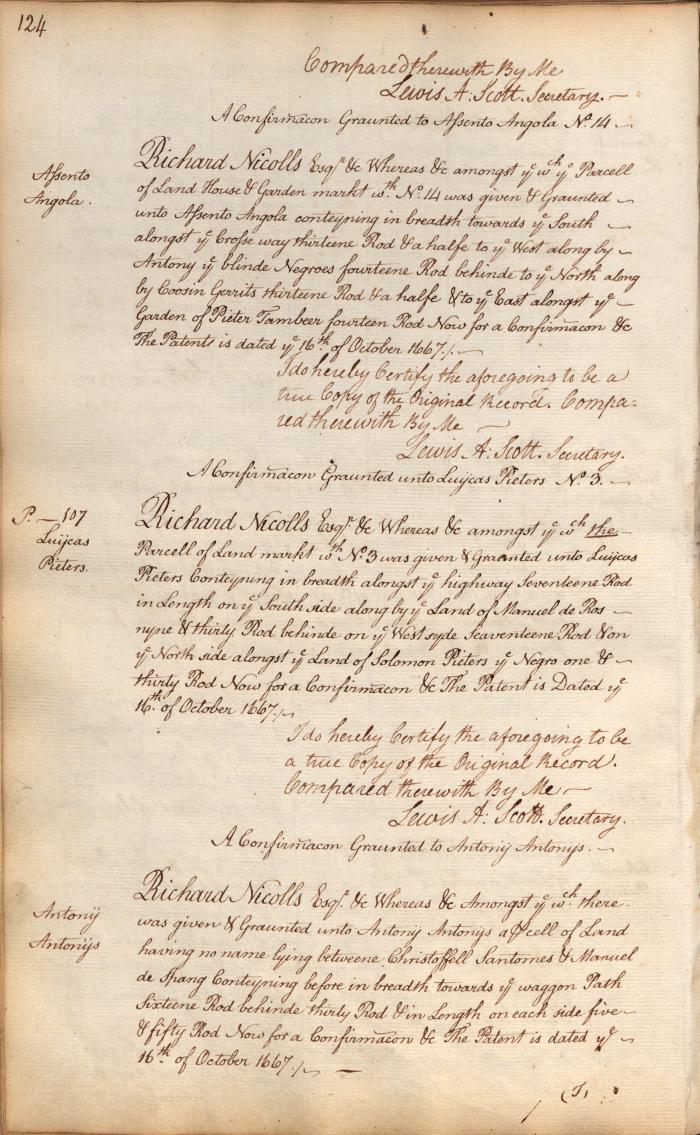 124
Compared therewith By Me
Lewis A: Scott. Secretary.
A Confirmacon Graunted to Assento Angola No. 14
Assento
Angola.
Richard Nicolls Esqr. &c Whereas &c amongst ye. wch. ye. Parcell
of Land House & Garden markt wth. No. 14 was given & Graunted
unto Assento Angola conteyning in breadth towards ye. South
alongst ye. Crosse way thirteene Rod & a halfe to ye. West along by
Antony ye. blinde Negroes fourteene Rod behinde to ye. North along
by Coosin Gerrits thirteene Rod & a halfe & to ye. East alongst ye.
Garden of Pieter Tambeer fourteen Rod Now for a Confirmacon &c
The Patents is dated ye. 16th. of October 1667./.
I do hereby Certify the aforegoing to be a
true Copy of the Original Record. Compa:
red therewith By Me
Lewis A: Scott. Secretary.
A Confirmacon Graunted unto Luijcas Pieters No. 3.
P. — 107
Luijcas
Pieters.
Richard Nicolls Esqr. &c Whereas &c amongst ye. wch. the
Parcell of Land markt wth. No. 3 was given & Graunted unto Luijcas
Pieters Conteyning in breadth alongst ye. highway Seventeene Rod
in Length on ye. South side along by ye. Land of Manuel de Ros
nyne & thirty Rod behinde on ye. West syde Seaventeene Rod & on
ye. North side alongst ye. Land of Solomon Pieters ye. Negro one &
thirty Rod Now for a Confirmacon &c The Patent is Dated ye.
16th. of October 1667./.
I do hereby Certify the aforegoing to be
a true Copy of the Original Record.
Compared therewith By Me
Lewis A: Scott. Secretary.
A Confirmacon Graunted to Antonij Antonys.
Antonij
Antonijs
Richard Nicolls Esqr. &c Whereas &c Amongst ye. wch. there
was given & Graunted unto Antony Antonys a Pcell of Land
having no name lying betweene Christoffell Santomes & Manuel
de Spang Conteyning before in breadth towards ye. waggon Path
Sixteene Rod behinde thirty Rod & in Length on each side five
& fifty Rod Now for a Confirmacon &c The Patent is dated ye.
16th. of October 1667./.